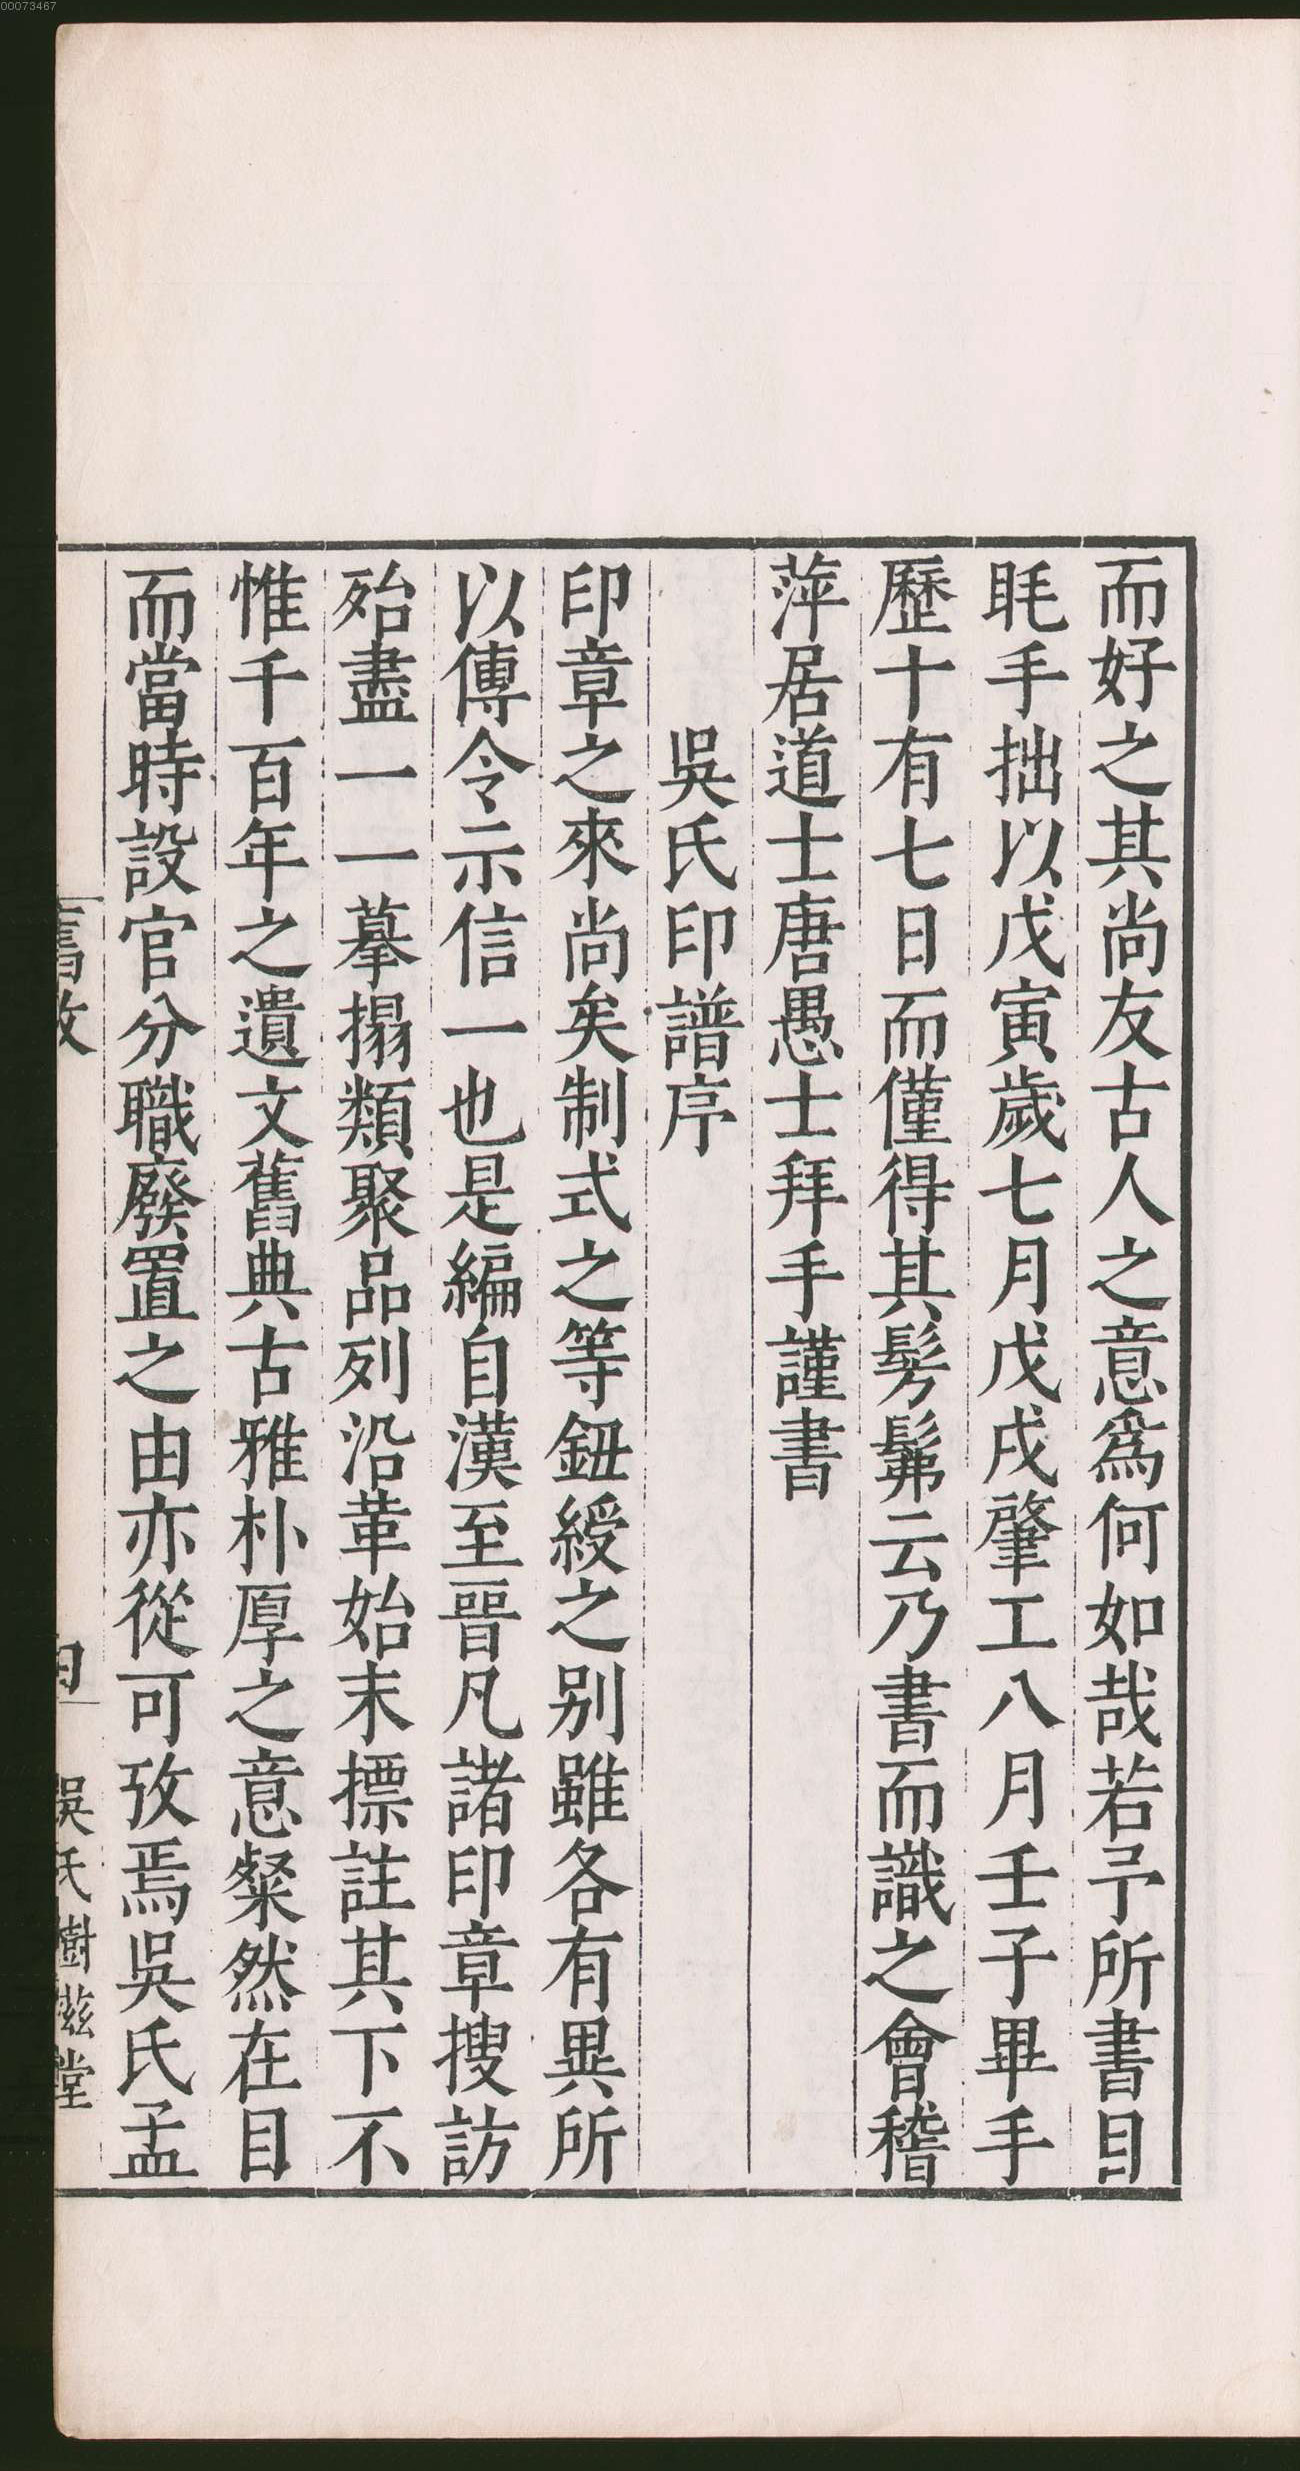 00073467
而好之其尚友古人之意爲何如哉若予所書目
眊手拙以戊寅歲七月戊戌肇工八月壬子畢手
歷十有七日而僅得其髣髴云乃書而識之會稽
萍居道士唐愚士拜手謹書
吳氏印譜序
印章之來尚矣制式之等鈕綬之别雖各有異所
以傳令示信一也是編自漢至晉凡諸印章搜訪
殆盡一一摹搨類聚品列沿革始末摽註其下不
惟千百年之遺文舊典古雅朴厚之意粲然在目
而當時設官分職廢置之由亦從可攷焉吳氏孟
舊攷
吳氏樹滋堂